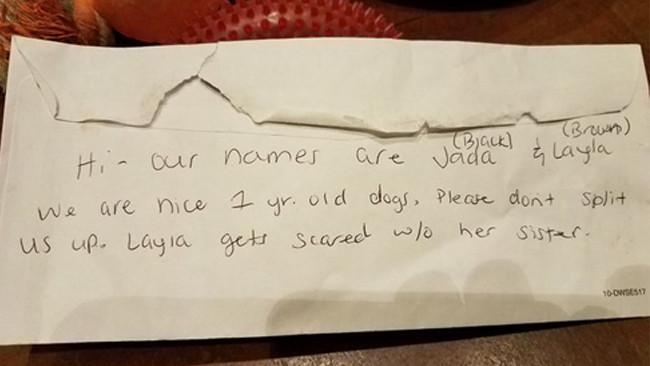 (Black) (Brown)
Hi- our names are Jada & Layla
We are nice 1 yr. old dogs. Please don't split
us up. Layla gets scared w/o her sister.
10-DWSE517